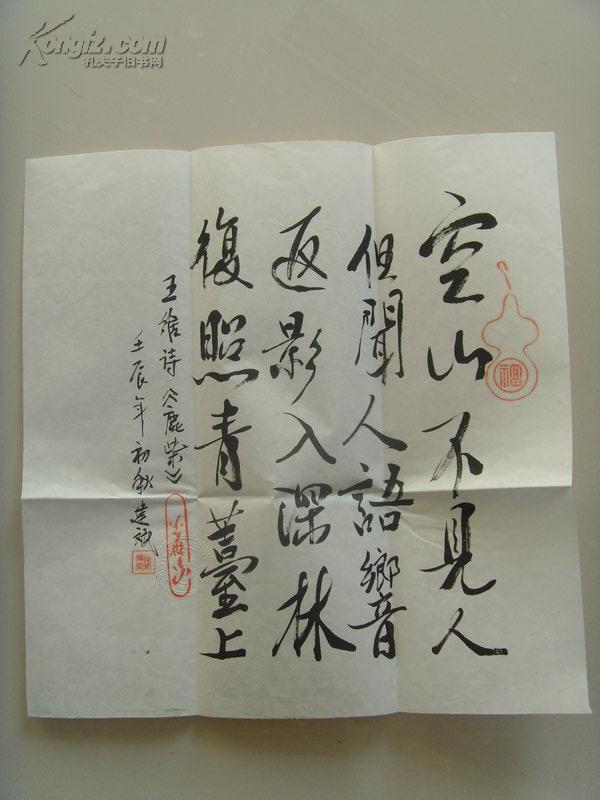 空山不见人
但聞人語響
返影入深林
復照青薹上
王维诗《鹿柴》
壬辰年初秋建斌
福
Kongfz.com
孔夫子旧书网